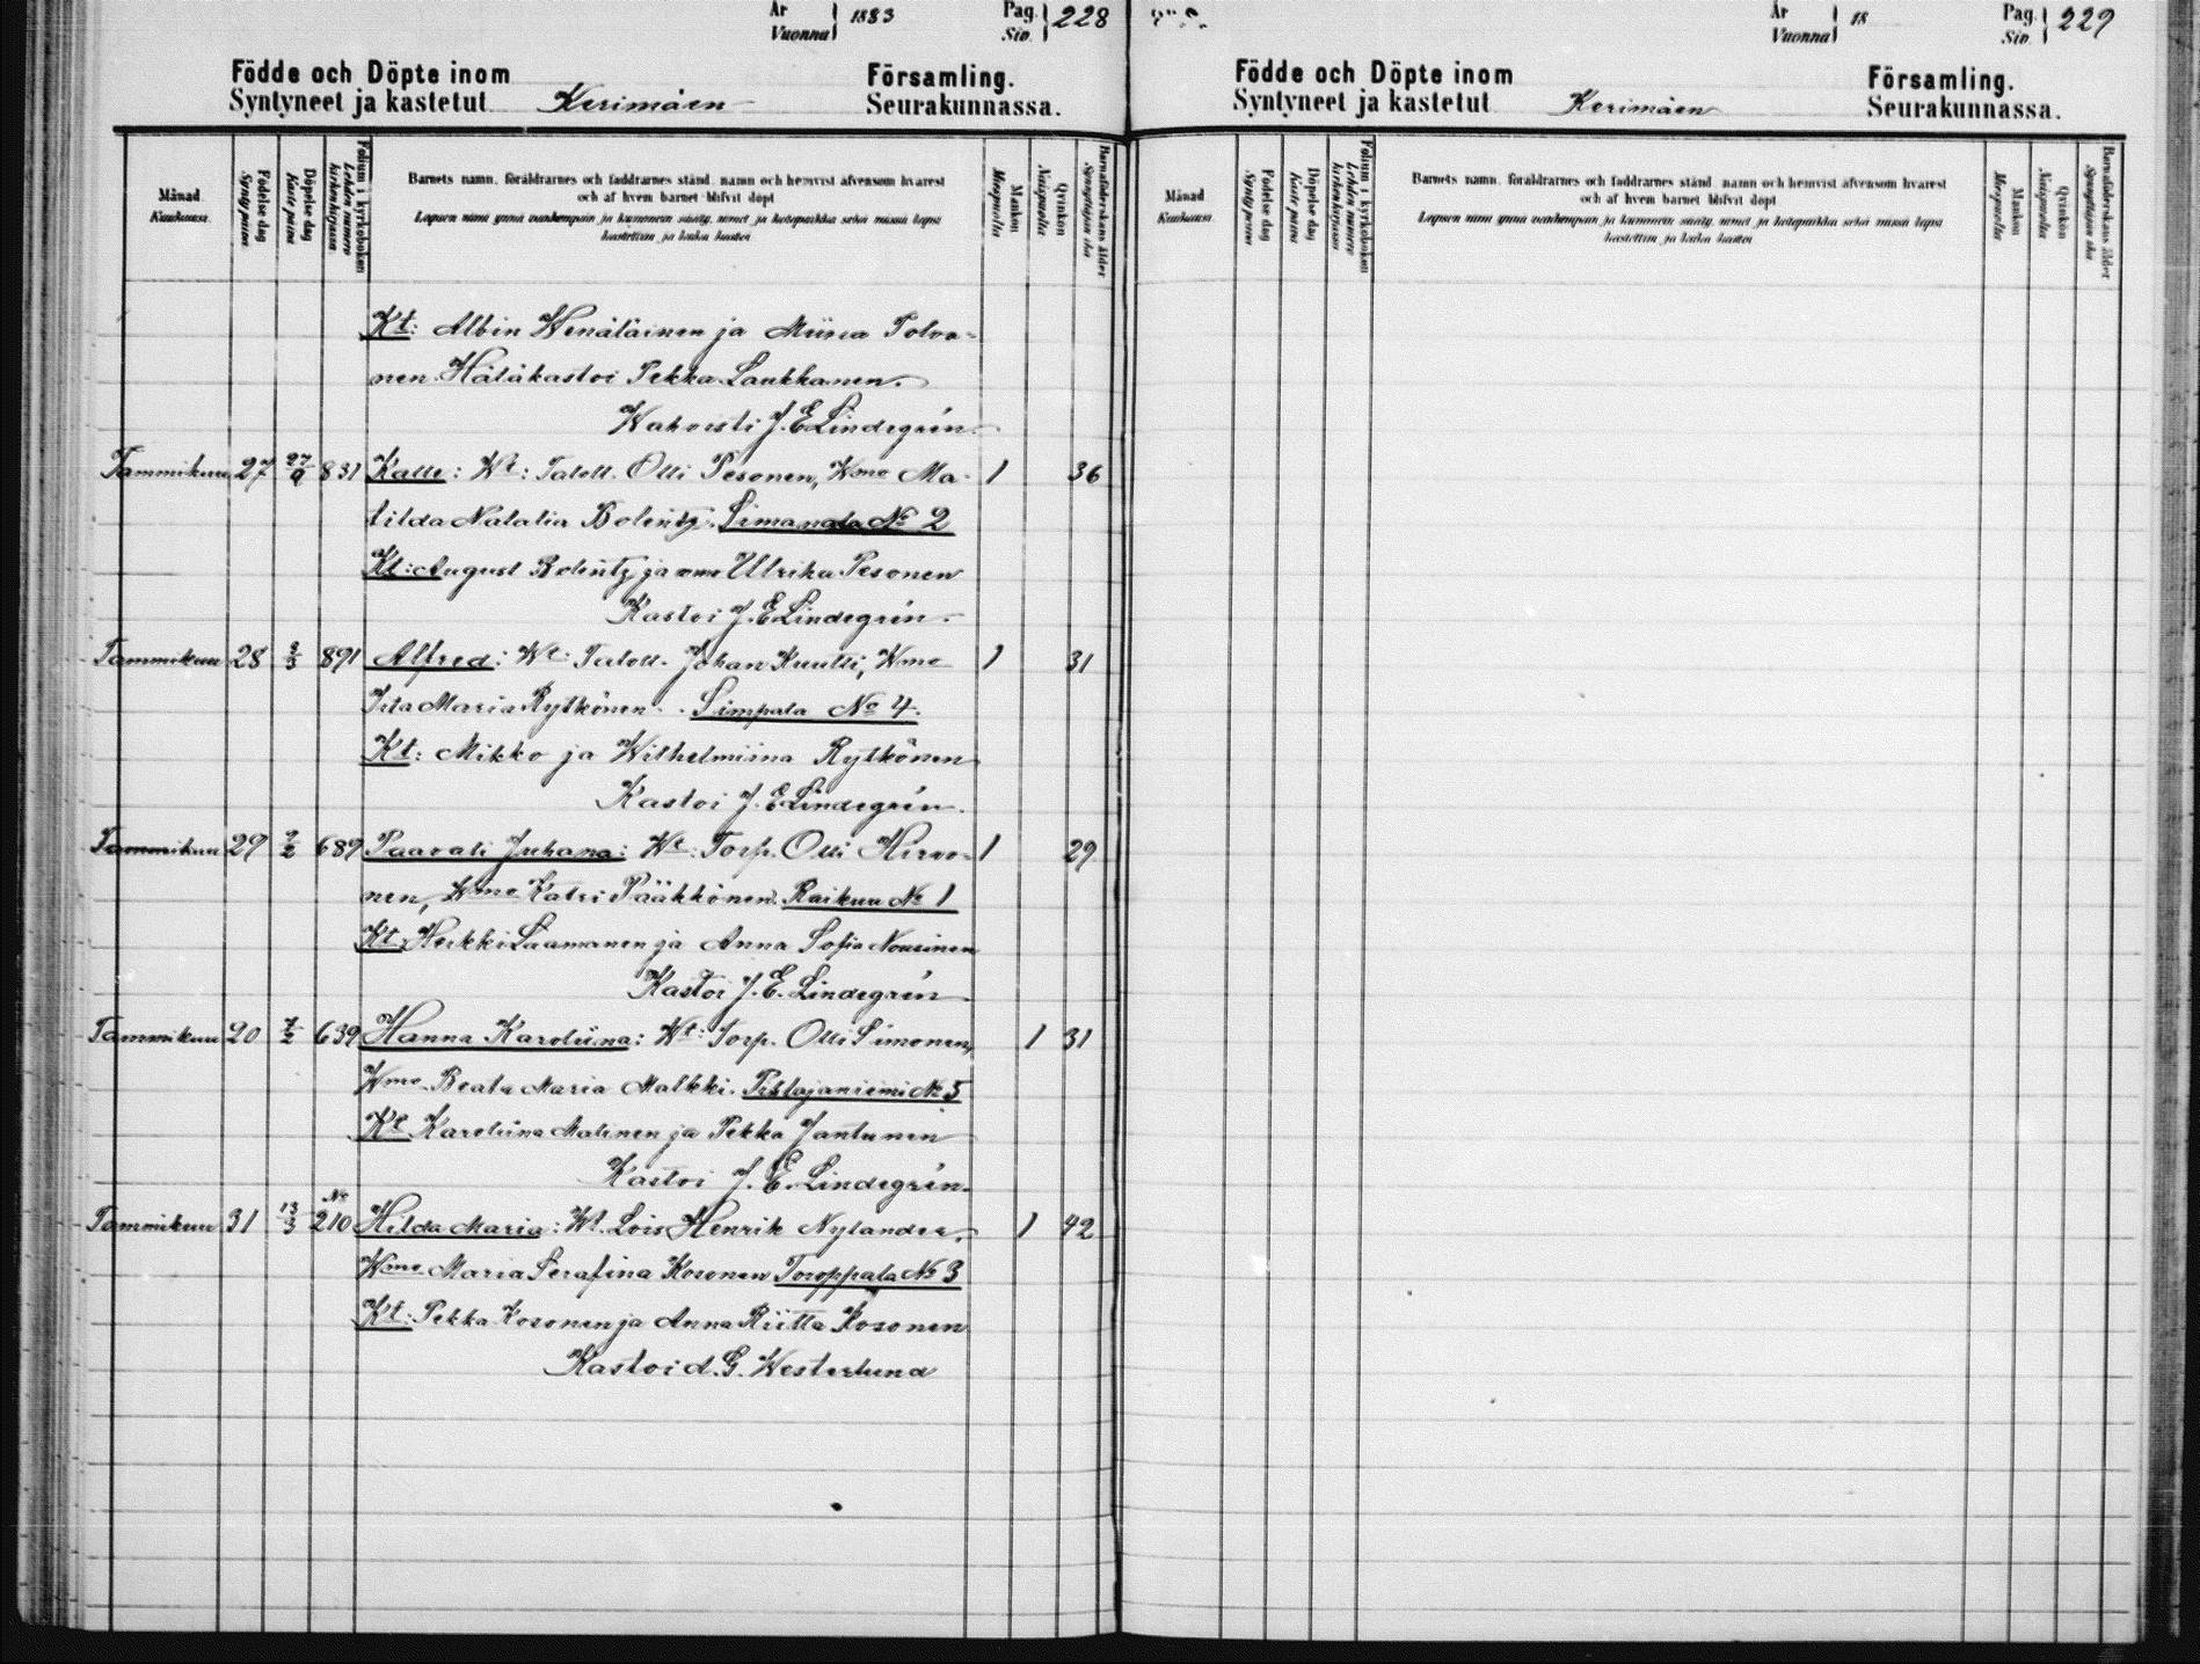 År Vuonna 1883 Pag. Siv. 228
Födde och Döpte inom Församling.
Syntyneet ja kastetut Kerimäen Seurakunnassa.
Månad Kuukausi
Födelse dag Synty päivä
Döpelse dag Kaste päivä
Folium i kyrkoboken Lehden numero kirkonkirjassa
Barnets namn, föräldrarnes och faddrarnes stånd, namn och hemvist äfvensom hvarest
och af hvem barnet blifvit döpt
Lapsen nimi ynnä vanhempain ja kummein sääty, nimet ja kotopaikka sekä missä lapsi
kastettiin ja keka kastoi
Mankön Miespuolia
Qvinkön Naispuolia
Barnaföderskans ålder Synnyttäjän ikä
Kt: Albin Wenäläinen ja Miina Tolva-
nen. Hätäkastoi Pekka Laukkanen.
Wahvisti J. E Lindegrén.
Tammikuu 27 831 Kalle: Wt: Taloll. Olli Pesonen, Wmo Ma- 1 36
tilda Natalia Boleütz. Simanala No 2
Kt: August Boleütz ja Ulrika Pesonen
Kastoi J. E Lindegrén.
Tammikuu 28 3/3 891 Alfred: Wt: Taloll. Johan Kuutti, Wmo 1 31
Ida Maria Rytkönen. Simpala No 4.
Kt: Mikko ja Wilhelmiina Rytkönen
Kastoi J. E Lindegrén.
Tammikuu 29 9/2 689 Paavali Juhana: Wt: Torp. Olli Hirvo- 1 29
nen, Wmo Katri Pääkkönen. Raikuu No 1
Kt: Heikki Laamanen ja Anna Sofia Nousinen
Kastoi J. E. Lindegrén
Tammikuu 20 7/2 639 Hanna Karoliina: Wt: Torp. Olli Simonen, 1 31
Wmo Beata Maria Malkki. Pistajaniemi No 5
Kt Karoliina Malinen ja Pekka Jantunen
Kastoi J. E. Lindegrén.
Tammikuu 31 13/3 No 210 Hilda Maria: Wt. Lois Henrik Nylander, 1 42
Wmo Maria Serafina Kosonen Toroppala No 3
Kt: Pekka Kosonen ja Anna Riitta Kosonen
Kastoi A. G. Westerlund
År Vuonna 18 Pag. Siv. 229
Födde och Döpte inom Församling.
Syntyneet ja kastetut Kerimäen Seurakunnassa.
Månad Kuukausi
Födelse dag Synty päivä
Döpelse dag Kaste päivä
Folium i kyrkoboken Lehden numero kirkonkirjassa
Barnets namn, föräldrarnes och faddrarnes stånd, namn och hemvist äfvensom hvarest
och af hvem barnet blifvit döpt
Lapsen nimi ynnä vanhempain ja kummein sääty, nimet ja kotopaikka sekä missä lapsi
kastettiin ja keka kastoi
Mankön Miespuolia
Qvinkön Naispuolia
Barnaföderskans ålder Synnyttäjän ikä